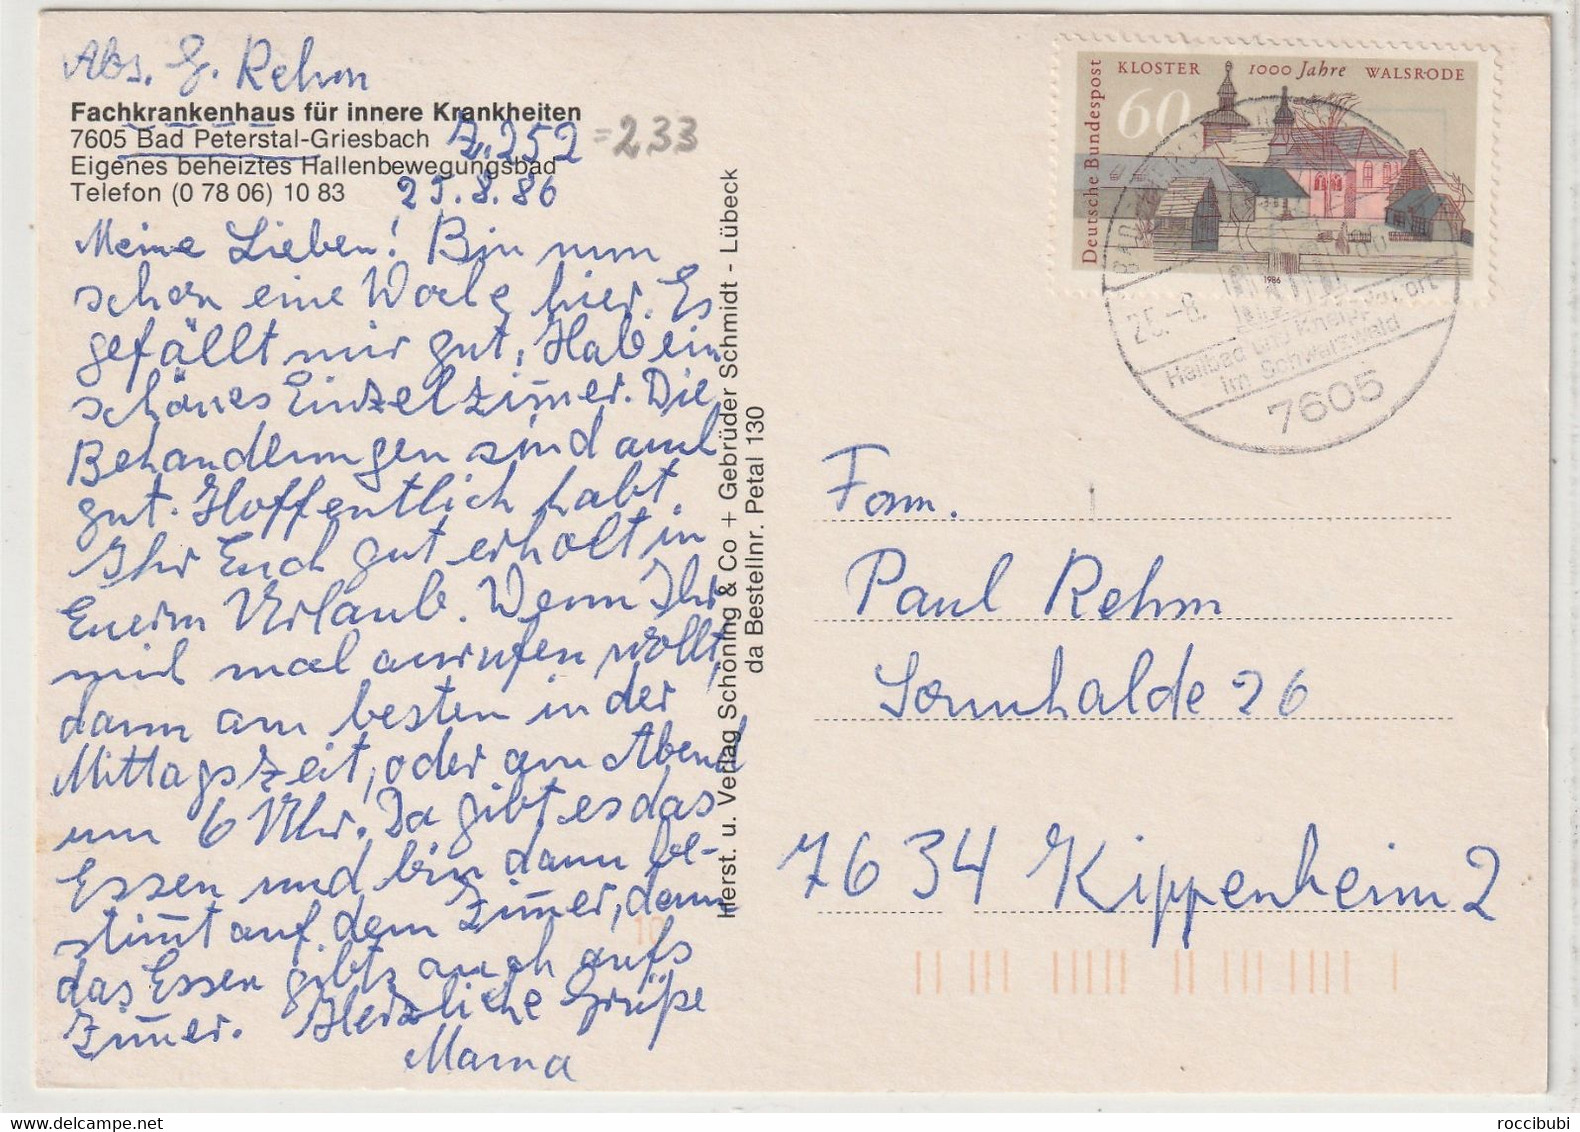 Abs. G. Rehm
Fachkrankenhaus für innere Krankheiten
7605 Bad Peterstal-Griesbach Z. 252 =233
Eigenes beheiztes Hallenbewegungsbad
Telefon (0 78 06) 10 83 25.8.86
Meine Lieben! Bin nun
schon eine Woche hier. Es
gefällt mir gut, Hab ein
schönes Einzelzimmer. Die
Behandlungen sind auch
gut. Hoffentlich habt
Ihr Euch gut erholt in
Eurem Urlaub. Wenn Ihr
mich mal anrufen wollt,
dann am besten in der
Mittagszeit, oder am Abend
um 6 Uhr. Da gibt es das
Essen und bin dann be-
stimmt auf dem Zimmer, denn
das Essen gibts auch aufs
Zimmer. Herzliche Grüße
Mama
Herst. u. Verlag Schöning & Co + Gebrüder Schmidt - Lübeck
da Bestellnr. Petal 130
Deutsche Bundespost
KLOSTER 1000 Jahre WALSRODE
60
1986
25.-8.
Heilbad und Kneippkurort
im Schwarzwald
7605
Fam.
Paul Rehm
Sonnhalde 26
7634 Kippenheim 2
roccibubi